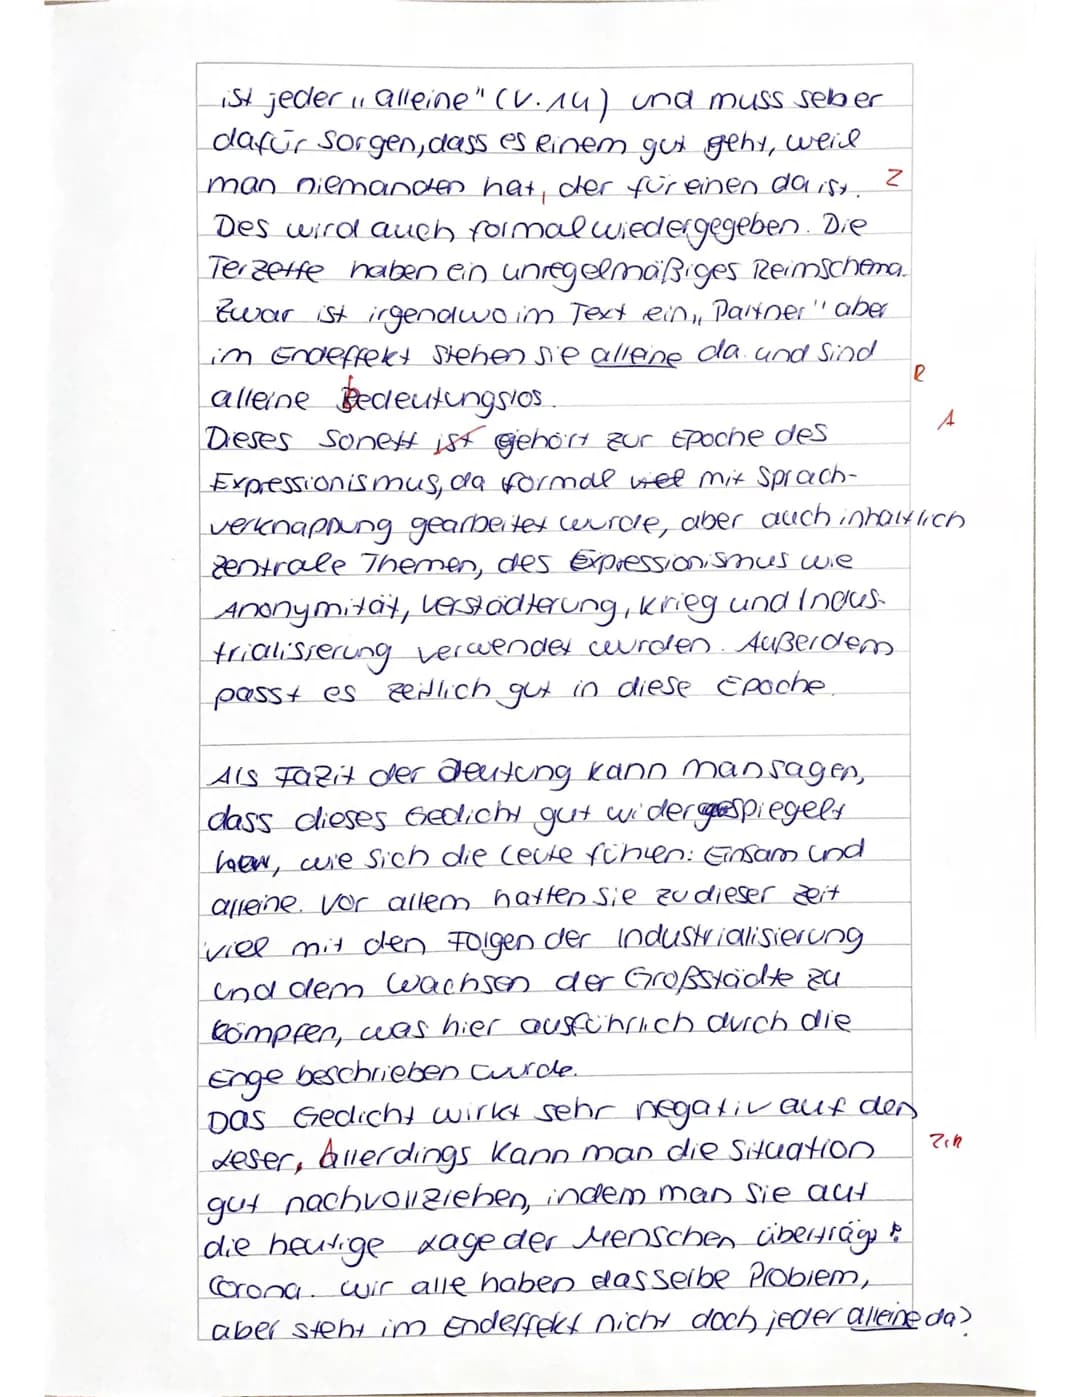 ist jeder „alleine" (V. 14) und muss selber
dafür sorgen, dass es einem gut geht, weil
man niemanden hat, der für einen da ist. Z
Des wird auch formal wiedergegeben. Die
Terzette haben ein unregelmäßiges Reimschema.
Zwar ist irgendwo im Text ein „Partner" aber
im Endeffekt stehen sie alleine da und sind
R
alleine bedeutungslos.
A
Dieses Sonett ist gehört zur Epoche des
Expressionismus, da formal viel mit Sprach-
verknappung gearbeitet wurde, aber auch inhaltlich
zentrale Themen, des Expressionismus wie
Anonymität, Verstädterung, Krieg und Indus-
trialisierung verwendet wurden. Außerdem
passt es zeitlich gut in diese Epoche.
Als Fazit der Deutung kann man sagen,
dass dieses Gedicht gut widerspiegelt
wie sich die Leute fühlen: Einsam und
alleine. Vor allem hatten sie zu dieser Zeit
viel mit den Folgen der Industrialisierung
und dem Wachsen der Großstädte zu
kämpfen, was hier ausführlich durch die
Enge beschrieben wurde.
Das Gedicht wirkt sehr negativ auf den
Leser, allerdings kann man die Situation
gut nachvollziehen, indem man sie auf
die heutige Lage der Menschen überträgt:
Corona. Wir alle haben dasselbe Problem,
aber steht im Endeffekt nicht doch jeder alleine da?